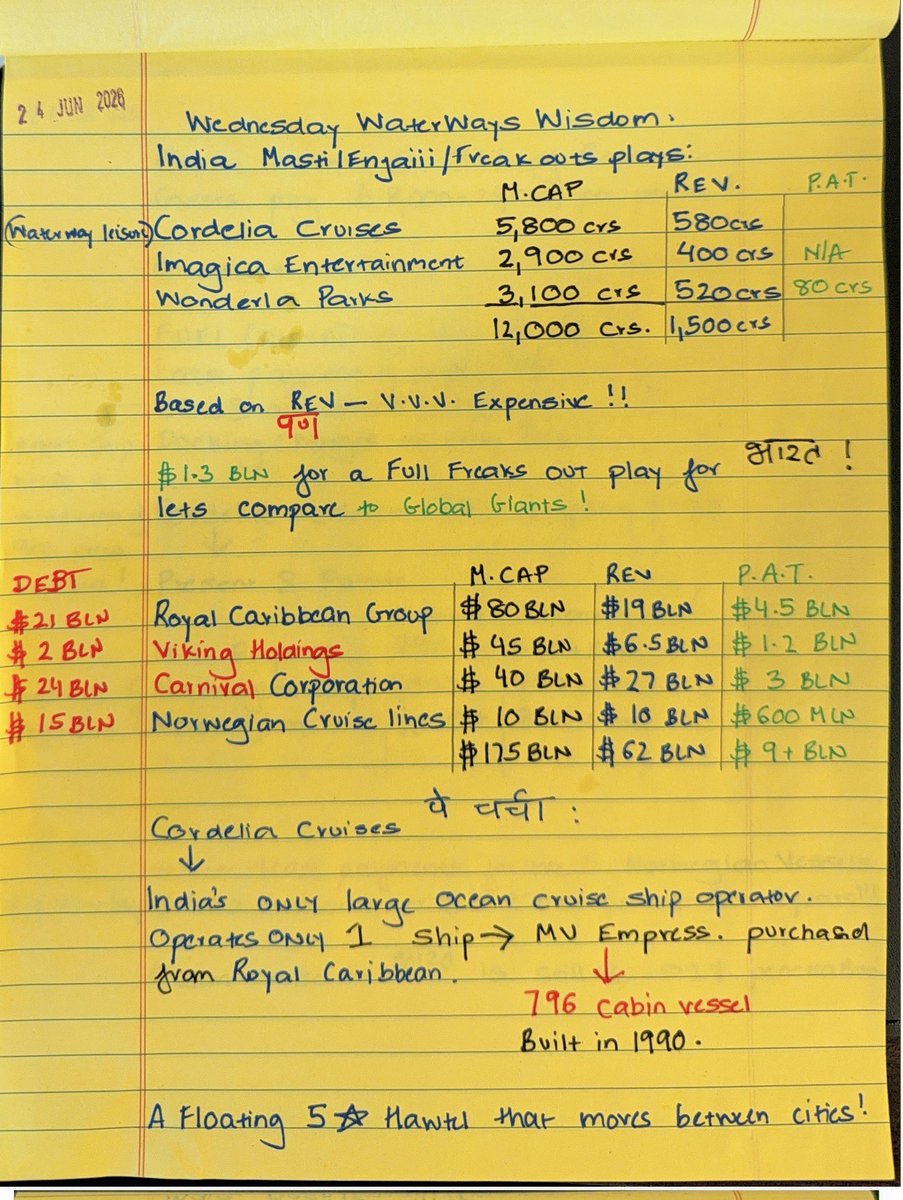 24 JUN 2026
Wednesday WaterWays Wisdom.
India Masti/Engaiii/Freak outs plays:
M.CAP REV. P.A.T.
(Waterway leisure) Cordelia Cruises 5,800 crs 580 crs
Imagica Entertainment 2,900 crs 400 crs N/A
Wonderla Parks 3,100 crs 520 crs 80 crs
12,000 Crs. 1,500 crs
Based on REV — V.V.V. Expensive !!
$1.3 BLN for a Full Freaks out play for भारत !
lets compare to Global Giants !
DEBT M.CAP REV P.A.T.
$21 BLN Royal Caribbean Group $80 BLN $19 BLN $4.5 BLN
$2 BLN Viking Holdings $45 BLN $6.5 BLN $1.2 BLN
$24 BLN Carnival Corporation $40 BLN $27 BLN $3 BLN
$15 BLN Norwegian Cruise lines $10 BLN $10 BLN $600 MLN
$175 BLN $62 BLN $9+ BLN
Cordelia Cruises पे चर्चा :
↓
India's ONLY large ocean cruise ship operator.
Operates ONLY 1 Ship → MV Empress. purchased
from Royal Caribbean.
↓
796 Cabin vessel
Built in 1990.
A Floating 5☆ Hawtel that moves between cities!